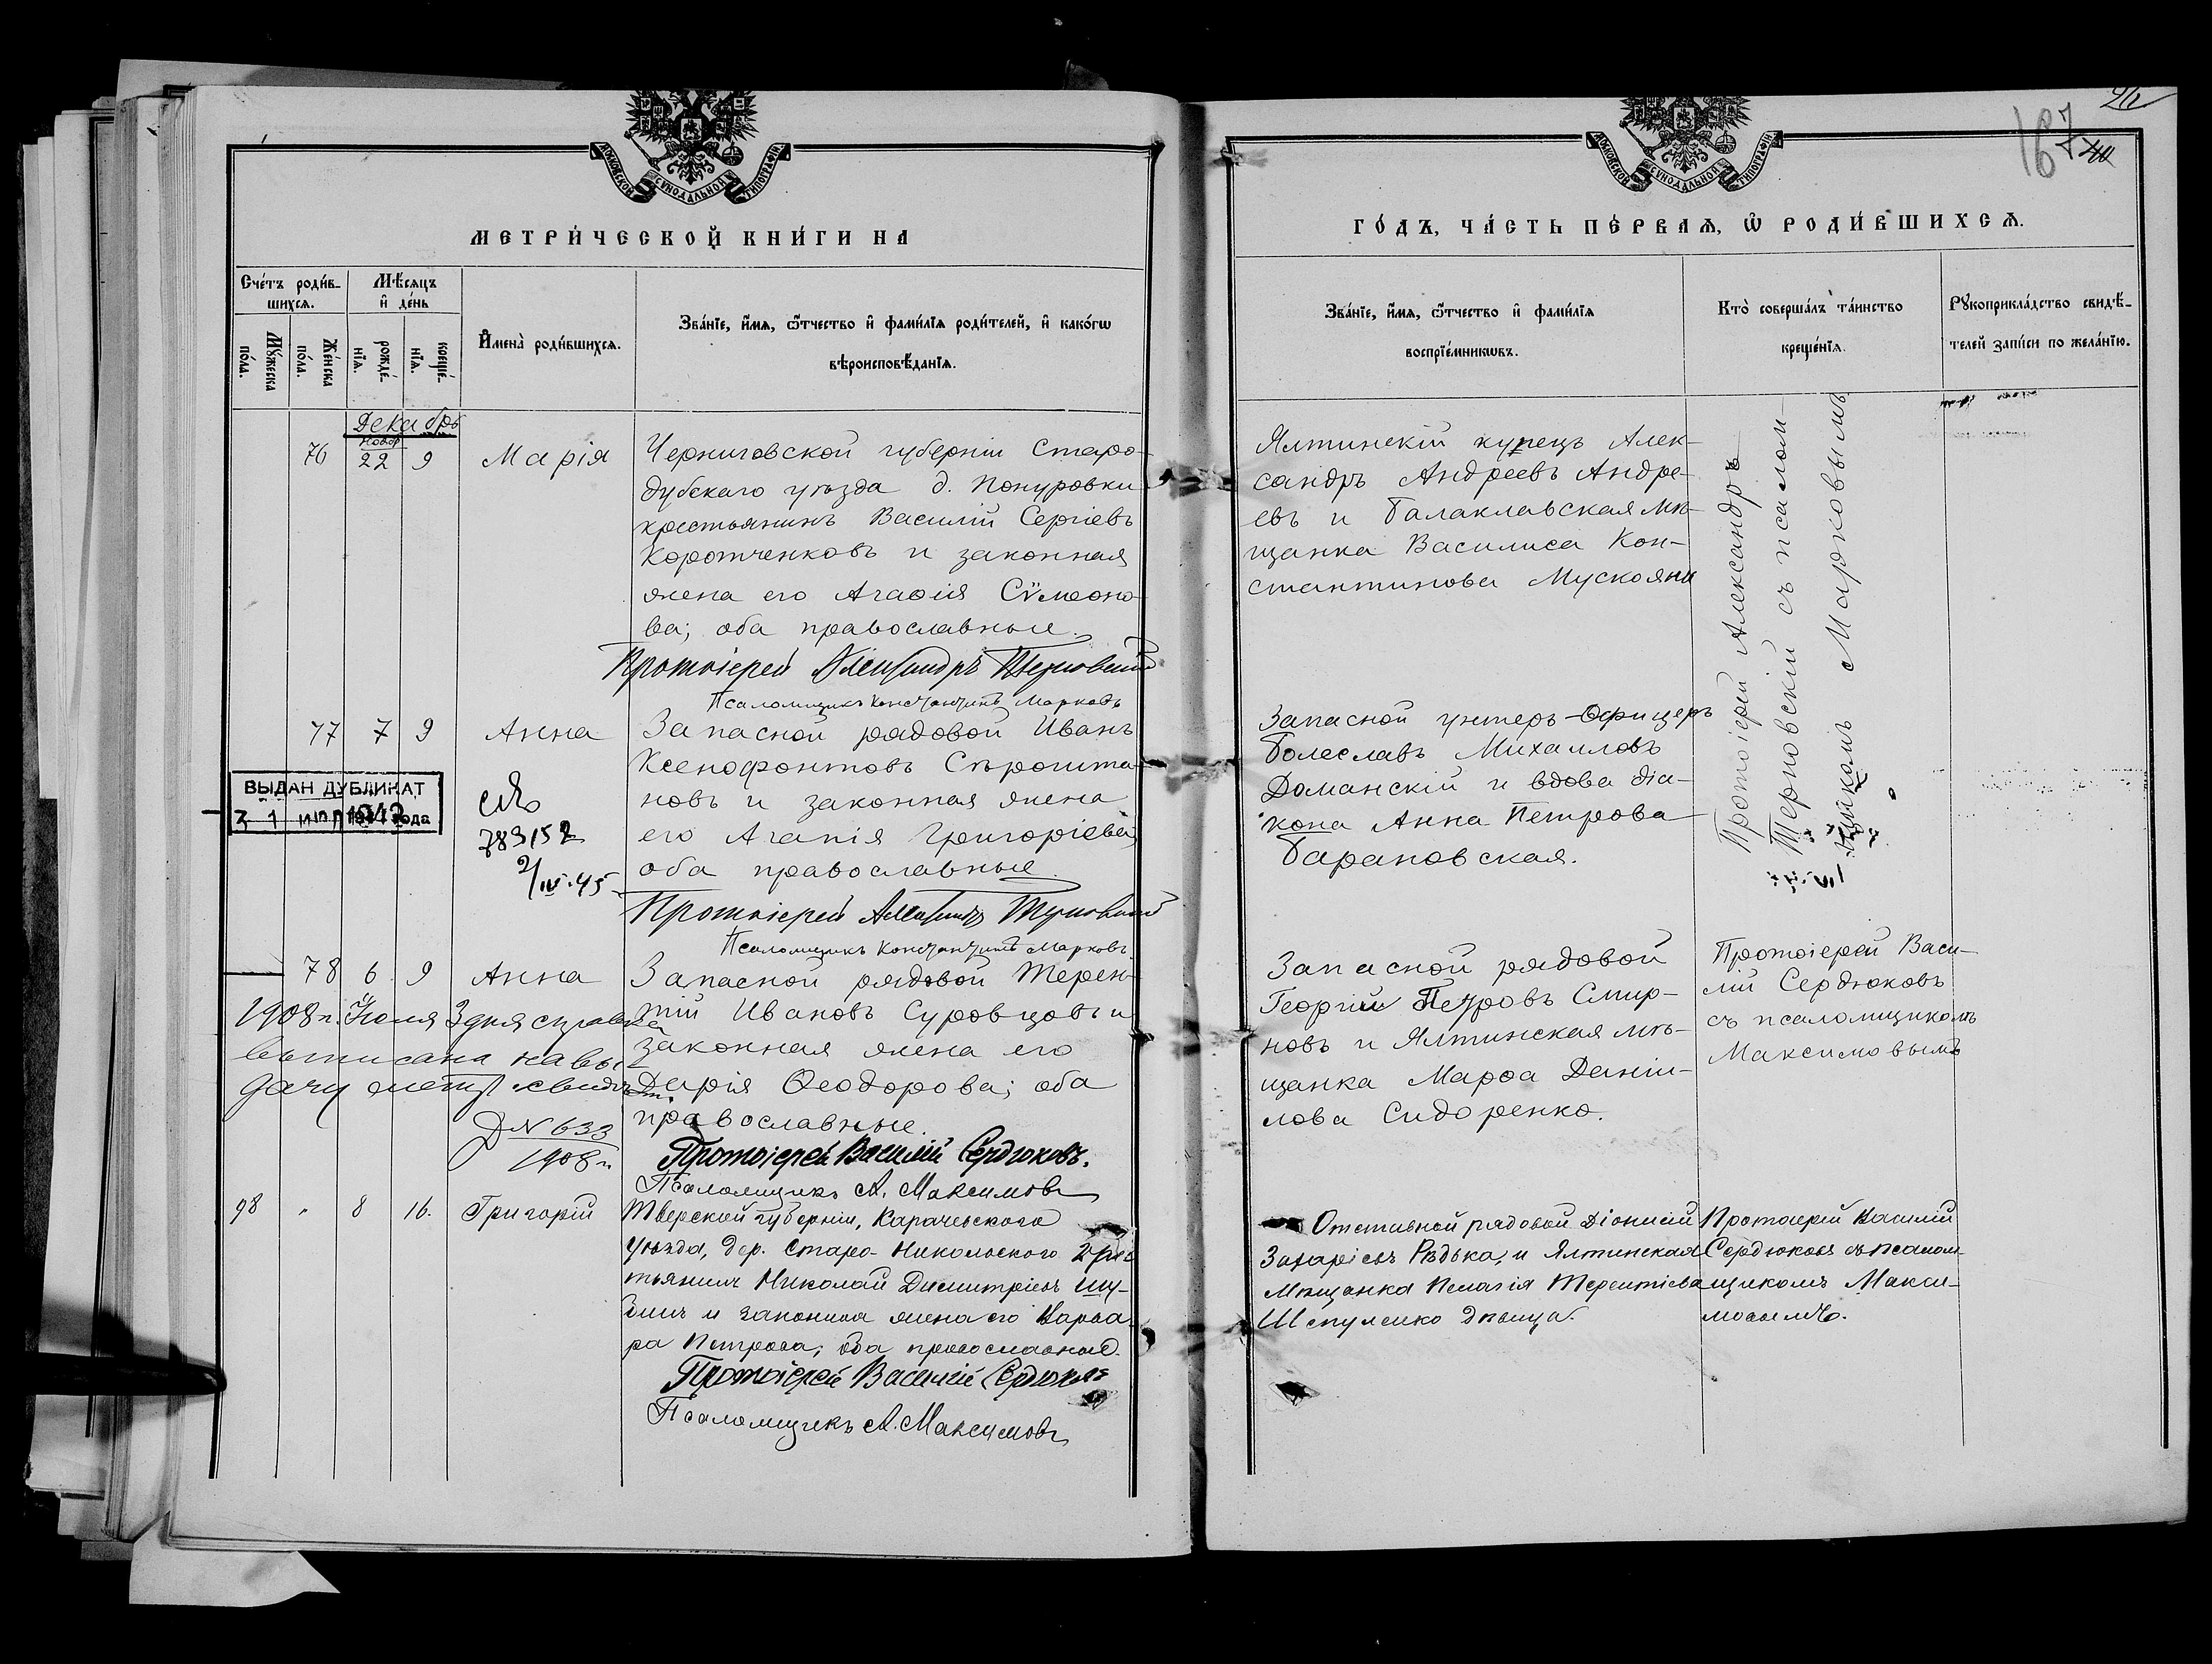 МОСКОВСКОЙ СѴНОДАЛЬНОЙ ТИПОГРАФІИ
МЕТРИ́ЧЕСКОЙ КНИ́ГИ НА
Сче́тъ роди́в-
шихся.
Мѣ́сяцъ
и҆ де́нь
Му́жеска
по́ла.
Же́нска
по́ла.
рожде́-
нїя.
креще́-
нїя.
И҆мена̀ роди́вшихся.
Зва́нїе, и҆́мя, ѻ҆́тчество и҆ фами́лїя роди́телей, и҆ како́гѡ
вѣроисповѣ́данїя.
Декабрь
Нояб
76 22 9 Марія
Черниговской губерніи Старо-
дубскаго уѣзда д. Понуровки
крестьянинъ Василій Сергіевъ
Коротченковъ и законная
жена его Агаѳія Сѵмеоно-
ва; оба православные.
Протоіерей Александръ Терновскій
Псаломщикъ Константинъ Марковъ
77 7 9 Анна
Запасной рядовой Иванъ
Ксенофонтовъ Сѣрошта-
новъ и законная жена
его Агапія Григоріева,
оба православные.
ВЫДАН ДУБЛИКАТ
1942 года
783152
2/IV.45
Протоіерей Александръ Терновскій
Псаломщикъ Константинъ Марковъ
78 6 9 Анна
Запасной рядовой Терен-
тій Ивановъ Суровцовъ и
законная жена его
Дарія Ѳеодорова; оба
православные.
1908 г. Июля 3 дня справка
выписана на вы-
дачу метр. свидѣт.
Д N 633
1908 г.
Протоіерей Василій Сердюковъ.
Псаломщикъ А. Максимовъ
98 " 8 16. Григорій
Тверской губерніи, Карачевского
уѣзда, дер. Старо-Никольского крес-
тьянинъ Николай Димитріевъ Шу-
бинъ и законная жена его Варва-
ра Петрова; оба православные.
Протоіерей Василій Сердюковъ
Псаломщикъ А. Максимовъ
26
167
40
МОСКОВСКОЙ СѴНОДАЛЬНОЙ ТИПОГРАФІИ
ГО́ДЪ, ЧА́СТЬ ПЕ́РВАЯ, Ѡ҆ РОДИ́ВШИХСЯ.
Зва́нїе, и҆́мя, ѻ҆́тчество и҆ фами́лїя
воспрїе́мникѡвъ.
Кто̀ соверша́лъ та́инство
креще́нїя.
Рꙋкоприкла́дство свидѣ́-
телей за́писи по жела́нїю.
Ялтинскій купецъ Алек-
сандръ Андреевъ Андре-
евъ и Балаклавская мѣ-
щанка Василиса Кон-
стантинова Мускояни
Протоіерей Александръ
Терновскій съ псалом-
щикомъ Марковымъ
Запасной унтеръ-Офицеръ
Болеславъ Михаиловъ
Доманскій и вдова діа-
кона Анна Петрова
Барановская.
Запасной рядовой
Георгій Петровъ Смир-
новъ и Ялтинская мѣ-
щанка Марѳа Даніи-
лова Сидоренко.
Протоіерей Васи-
лій Сердюковъ
съ псаломщикомъ
Максимовымъ
Отставной рядовой Діонисій
Захаріевъ Рѣдька, и Ялтинская
Мѣщанка Пелагія Терентіева
Шепуленко дѣвица.
Протоіерей Василій
Сердюковъ съ псалом-
щикомъ Макси-
мовымъ.